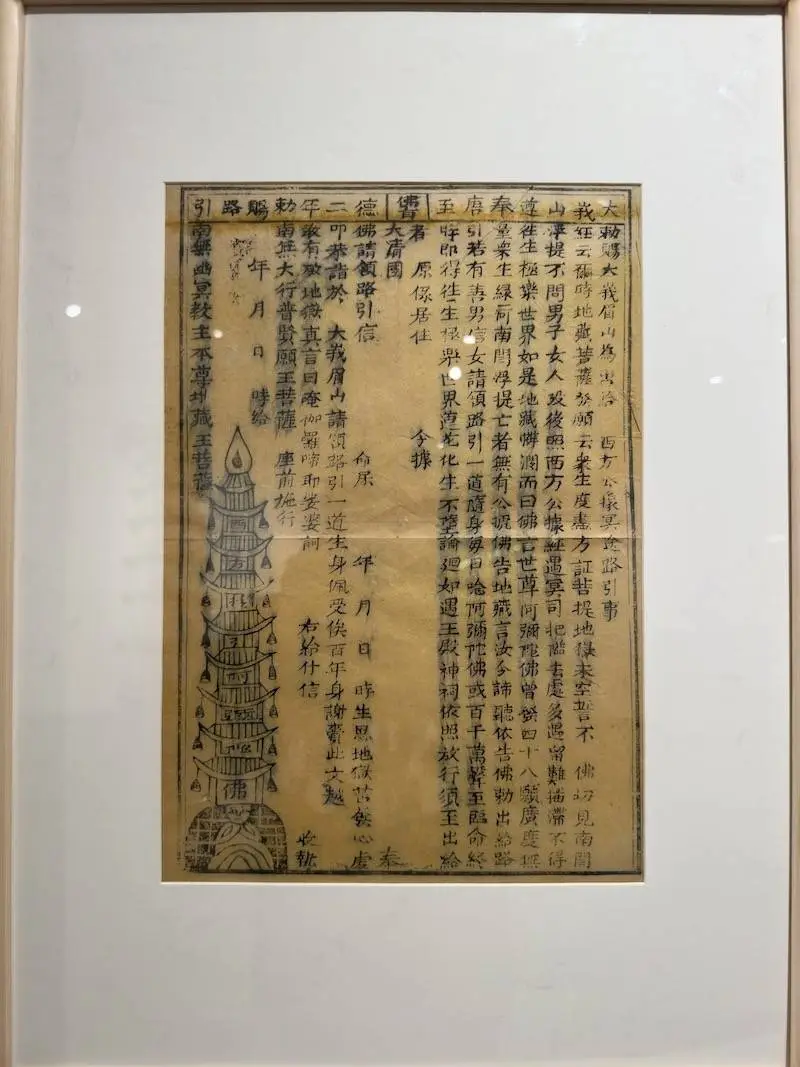 大勅賜大峩眉山為出給 西方公據冥途路引事
峩經云爾時地藏菩薩發願云衆生度盡方証菩提地獄未空誓不 佛切見南閻
山浮提不問男子女人歿後照西方公據經過冥司把酷去處多遇留難揩滯不得
遵往生極樂世界如是地藏憐湣而曰佛言世尊阿彌陀佛曾發四十八願廣度無
奉量衆生緣何南閻浮提亡者無有公據佛告地藏言汝今諦聽依告佛勅出給路
唐引若有善男信女請領路引一道隨身每日唸阿彌陀佛或百千萬聲至臨命終
至時即得往生極樂世界蓮花化生不墮論迴如遇王殿神祠依照放行須至出給
佛寶
者 原係居住 今據
大清國 奉
德佛請領路引信 命 年 月 日 時生思地獄苦無心虔
二叩恭詣於 大峩眉山請領路引一道生身佩受俟百年身謝賷此文越
年 有 地獄真言曰唵伽羅啼耶娑婆訶 右給付信 收執
勅南無大行普賢願王菩薩 座前施行
賜 年 月 日 時給
路
引南無幽冥教主本尊地藏王菩薩
西方
佛